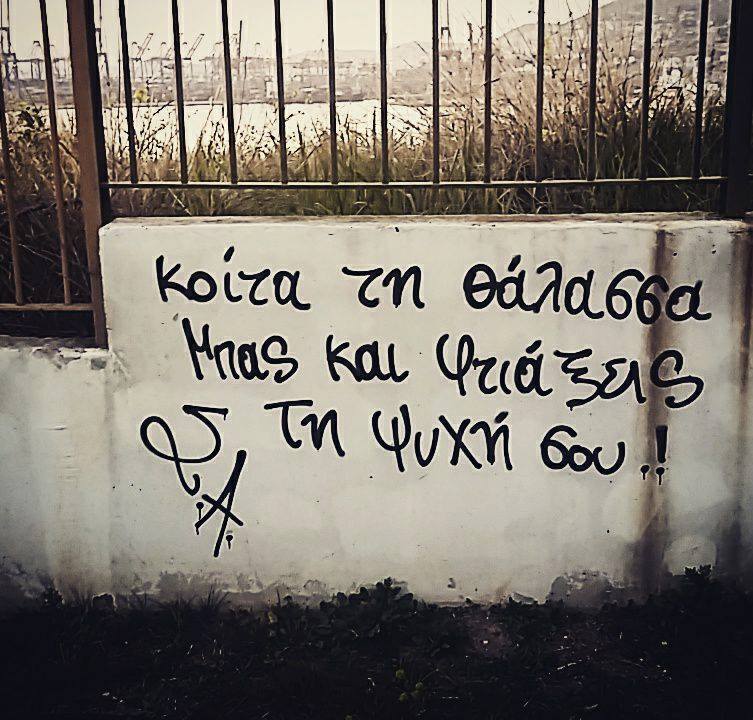 κοίτα τη θάλασσα
Μπας και φτιάξεις
τη ψυχή σου.!